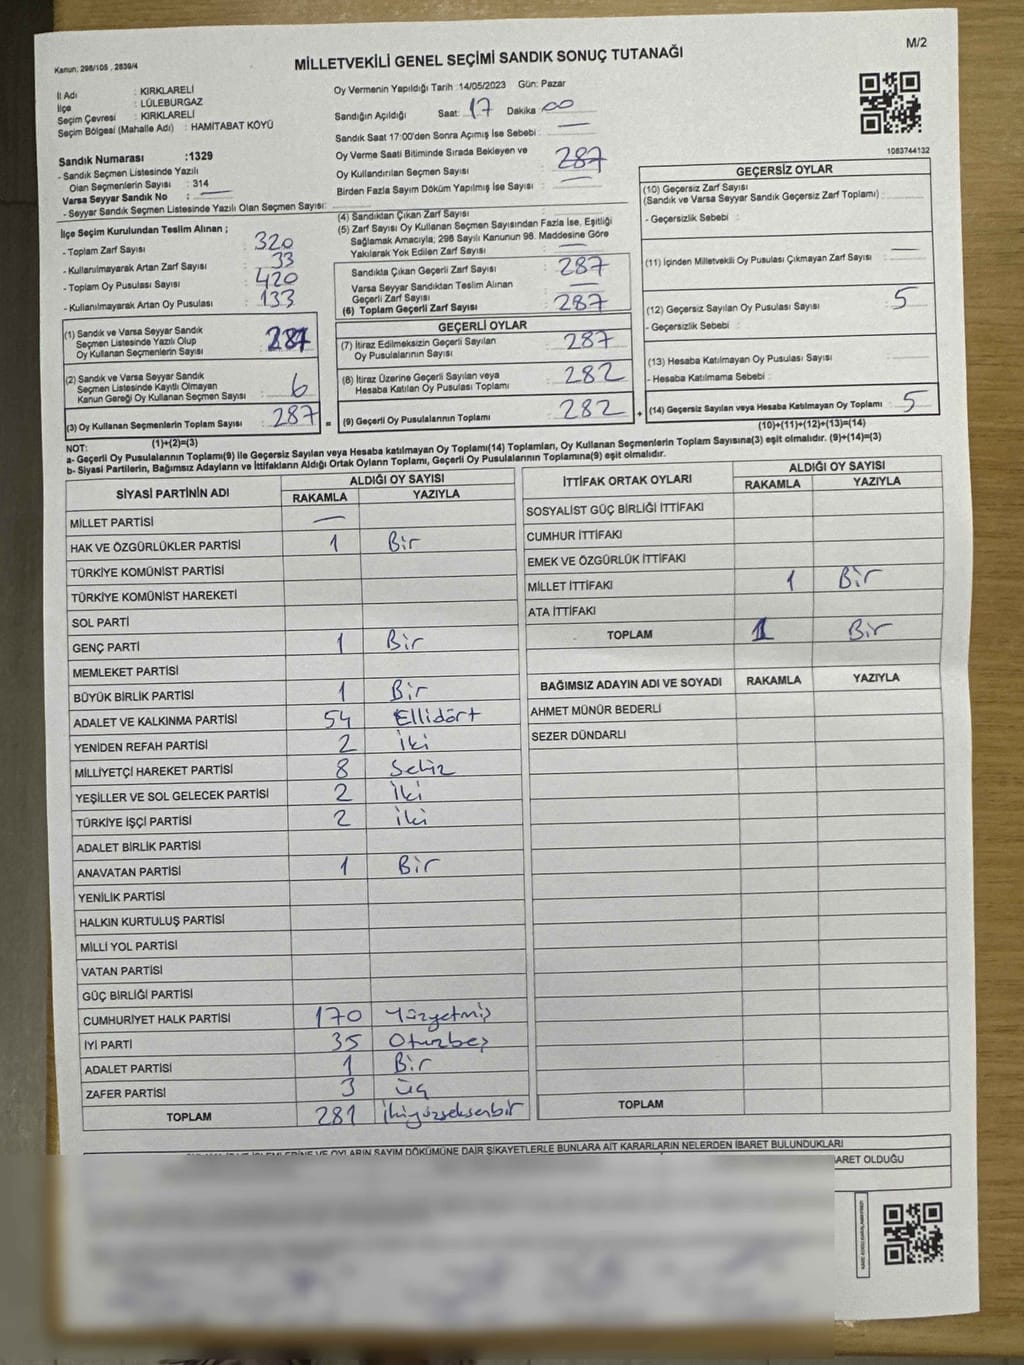 M/2
Kanun: 298/105 , 2839/4
MİLLETVEKİLİ GENEL SEÇİMİ SANDIK SONUÇ TUTANAĞI
İl Adı : KIRKLARELİ
İlçe : LÜLEBURGAZ
Seçim Çevresi : KIRKLARELİ
Seçim Bölgesi (Mahalle Adı) : HAMİTABAT KÖYÜ
Sandık Numarası :1329
- Sandık Seçmen Listesinde Yazılı
Olan Seçmenlerin Sayısı : 314
Varsa Seyyar Sandık No :
- Seyyar Sandık Seçmen Listesinde Yazılı Olan Seçmen Sayısı:
Oy Vermenin Yapıldığı Tarih :14/05/2023 Gün: Pazar
Sandığın Açıldığı Saat: 17 Dakika 00
Sandık Saat 17:00'den Sonra Açmış İse Sebebi :
Oy Verme Saati Bitiminde Sırada Bekleyen ve
Oy Kullandırılan Seçmen Sayısı : 287
Birden Fazla Sayım Döküm Yapılmış İse Sayısı :
1083744132
İlçe Seçim Kurulundan Teslim Alınan ;
- Toplam Zarf Sayısı : 320
- Kullanılmayarak Artan Zarf Sayısı : 33
- Toplam Oy Pusulası Sayısı : 420
- Kullanılmayarak Artan Oy Pusulası : 133
(1) Sandık ve Varsa Seyyar Sandık
Seçmen Listesinde Yazılı Olup
Oy Kullanan Seçmenlerin Sayısı :
(2) Sandık ve Varsa Seyyar Sandık
Seçmen Listesinde Kayıtlı Olmayan
Kanun Gereği Oy Kullanan Seçmen Sayısı : 6
(3) Oy Kullanan Seçmenlerin Toplam Sayısı : 287
(1)+(2)=(3)
(4) Sandıktan Çıkan Zarf Sayısı :
(5) Zarf Sayısı Oy Kullanan Seçmen Sayısından Fazla İse, Eşitliği
Sağlamak Amacıyla; 298 Sayılı Kanunun 98. Maddesine Göre
Yakılarak Yok Edilen Zarf Sayısı :
Sandıkla Çıkan Geçerli Zarf Sayısı : 287
Varsa Seyyar Sandıktan Teslim Alınan
Geçerli Zarf Sayısı :
(6) Toplam Geçerli Zarf Sayısı : 287
GEÇERLİ OYLAR
(7) İtiraz Edilmeksizin Geçerli Sayılan
Oy Pusulalarının Sayısı : 287
(8) İtiraz Üzerine Geçerli Sayılan veya
Hesaba Katılan Oy Pusulası Toplamı : 282
(9) Geçerli Oy Pusulalarının Toplamı : 282
GEÇERSİZ OYLAR
(10) Geçersiz Zarf Sayısı
(Sandık ve Varsa Seyyar Sandık Geçersiz Zarf Toplamı) :
- Geçersizlik Sebebi :
(11) İçinden Milletvekili Oy Pusulası Çıkmayan Zarf Sayısı :
(12) Geçersiz Sayılan Oy Pusulası Sayısı : 5
- Geçersizlik Sebebi :
(13) Hesaba Katılmayan Oy Pusulası Sayısı :
- Hesaba Katılmama Sebebi :
(14) Geçersiz Sayılan veya Hesaba Katılmayan Oy Toplamı : 5
(10)+(11)+(12)+(13)=(14)
NOT:
a- Geçerli Oy Pusulalarının Toplamı(9) ile Geçersiz Sayılan veya Hesaba katılmayan Oy Toplamı(14) Toplamları, Oy Kullanan Seçmenlerin Toplam Sayısına(3) eşit olmalıdır. (9)+(14)=(3)
b- Siyasi Partilerin, Bağımsız Adayların ve İttifakların Aldığı Ortak Oyların Toplamı, Geçerli Oy Pusulalarının Toplamına(9) eşit olmalıdır.
SİYASİ PARTİNİN ADI ALDIĞI OY SAYISI
RAKAMLA YAZIYLA
MİLLET PARTİSİ —
HAK VE ÖZGÜRLÜKLER PARTİSİ 1 Bir
TÜRKİYE KOMÜNİST PARTİSİ
TÜRKİYE KOMÜNİST HAREKETİ
SOL PARTİ
GENÇ PARTİ 1 Bir
MEMLEKET PARTİSİ
BÜYÜK BİRLİK PARTİSİ 1 Bir
ADALET VE KALKINMA PARTİSİ 54 Ellidört
YENİDEN REFAH PARTİSİ 2 İki
MİLLİYETÇİ HAREKET PARTİSİ 8 Sekiz
YEŞİLLER VE SOL GELECEK PARTİSİ 2 İki
TÜRKİYE İŞÇİ PARTİSİ 2 İki
ADALET BİRLİK PARTİSİ
ANAVATAN PARTİSİ 1 Bir
YENİLİK PARTİSİ
HALKIN KURTULUŞ PARTİSİ
MİLLİ YOL PARTİSİ
VATAN PARTİSİ
GÜÇ BİRLİĞİ PARTİSİ
CUMHURİYET HALK PARTİSİ 170 Yüzyetmiş
İYİ PARTİ 35 Otuzbeş
ADALET PARTİSİ 1 Bir
ZAFER PARTİSİ 3 Üç
TOPLAM 281 İkiyüzseksenbir
İTTİFAK ORTAK OYLARI ALDIĞI OY SAYISI
RAKAMLA YAZIYLA
SOSYALİST GÜÇ BİRLİĞİ İTTİFAKI
CUMHUR İTTİFAKI
EMEK VE ÖZGÜRLÜK İTTİFAKI
MİLLET İTTİFAKI 1 Bir
ATA İTTİFAKI
TOPLAM 1 Bir
BAĞIMSIZ ADAYIN ADI VE SOYADI RAKAMLA YAZIYLA
AHMET MÜNÜR BEDERLİ
SEZER DÜNDARLI
TOPLAM
OYLARIN SAYIM DÖKÜMÜNE DAİR ŞİKAYETLERLE BUNLARA AİT KARARLARIN NELERDEN İBARET BULUNDUKLARI
BARET OLDUĞU